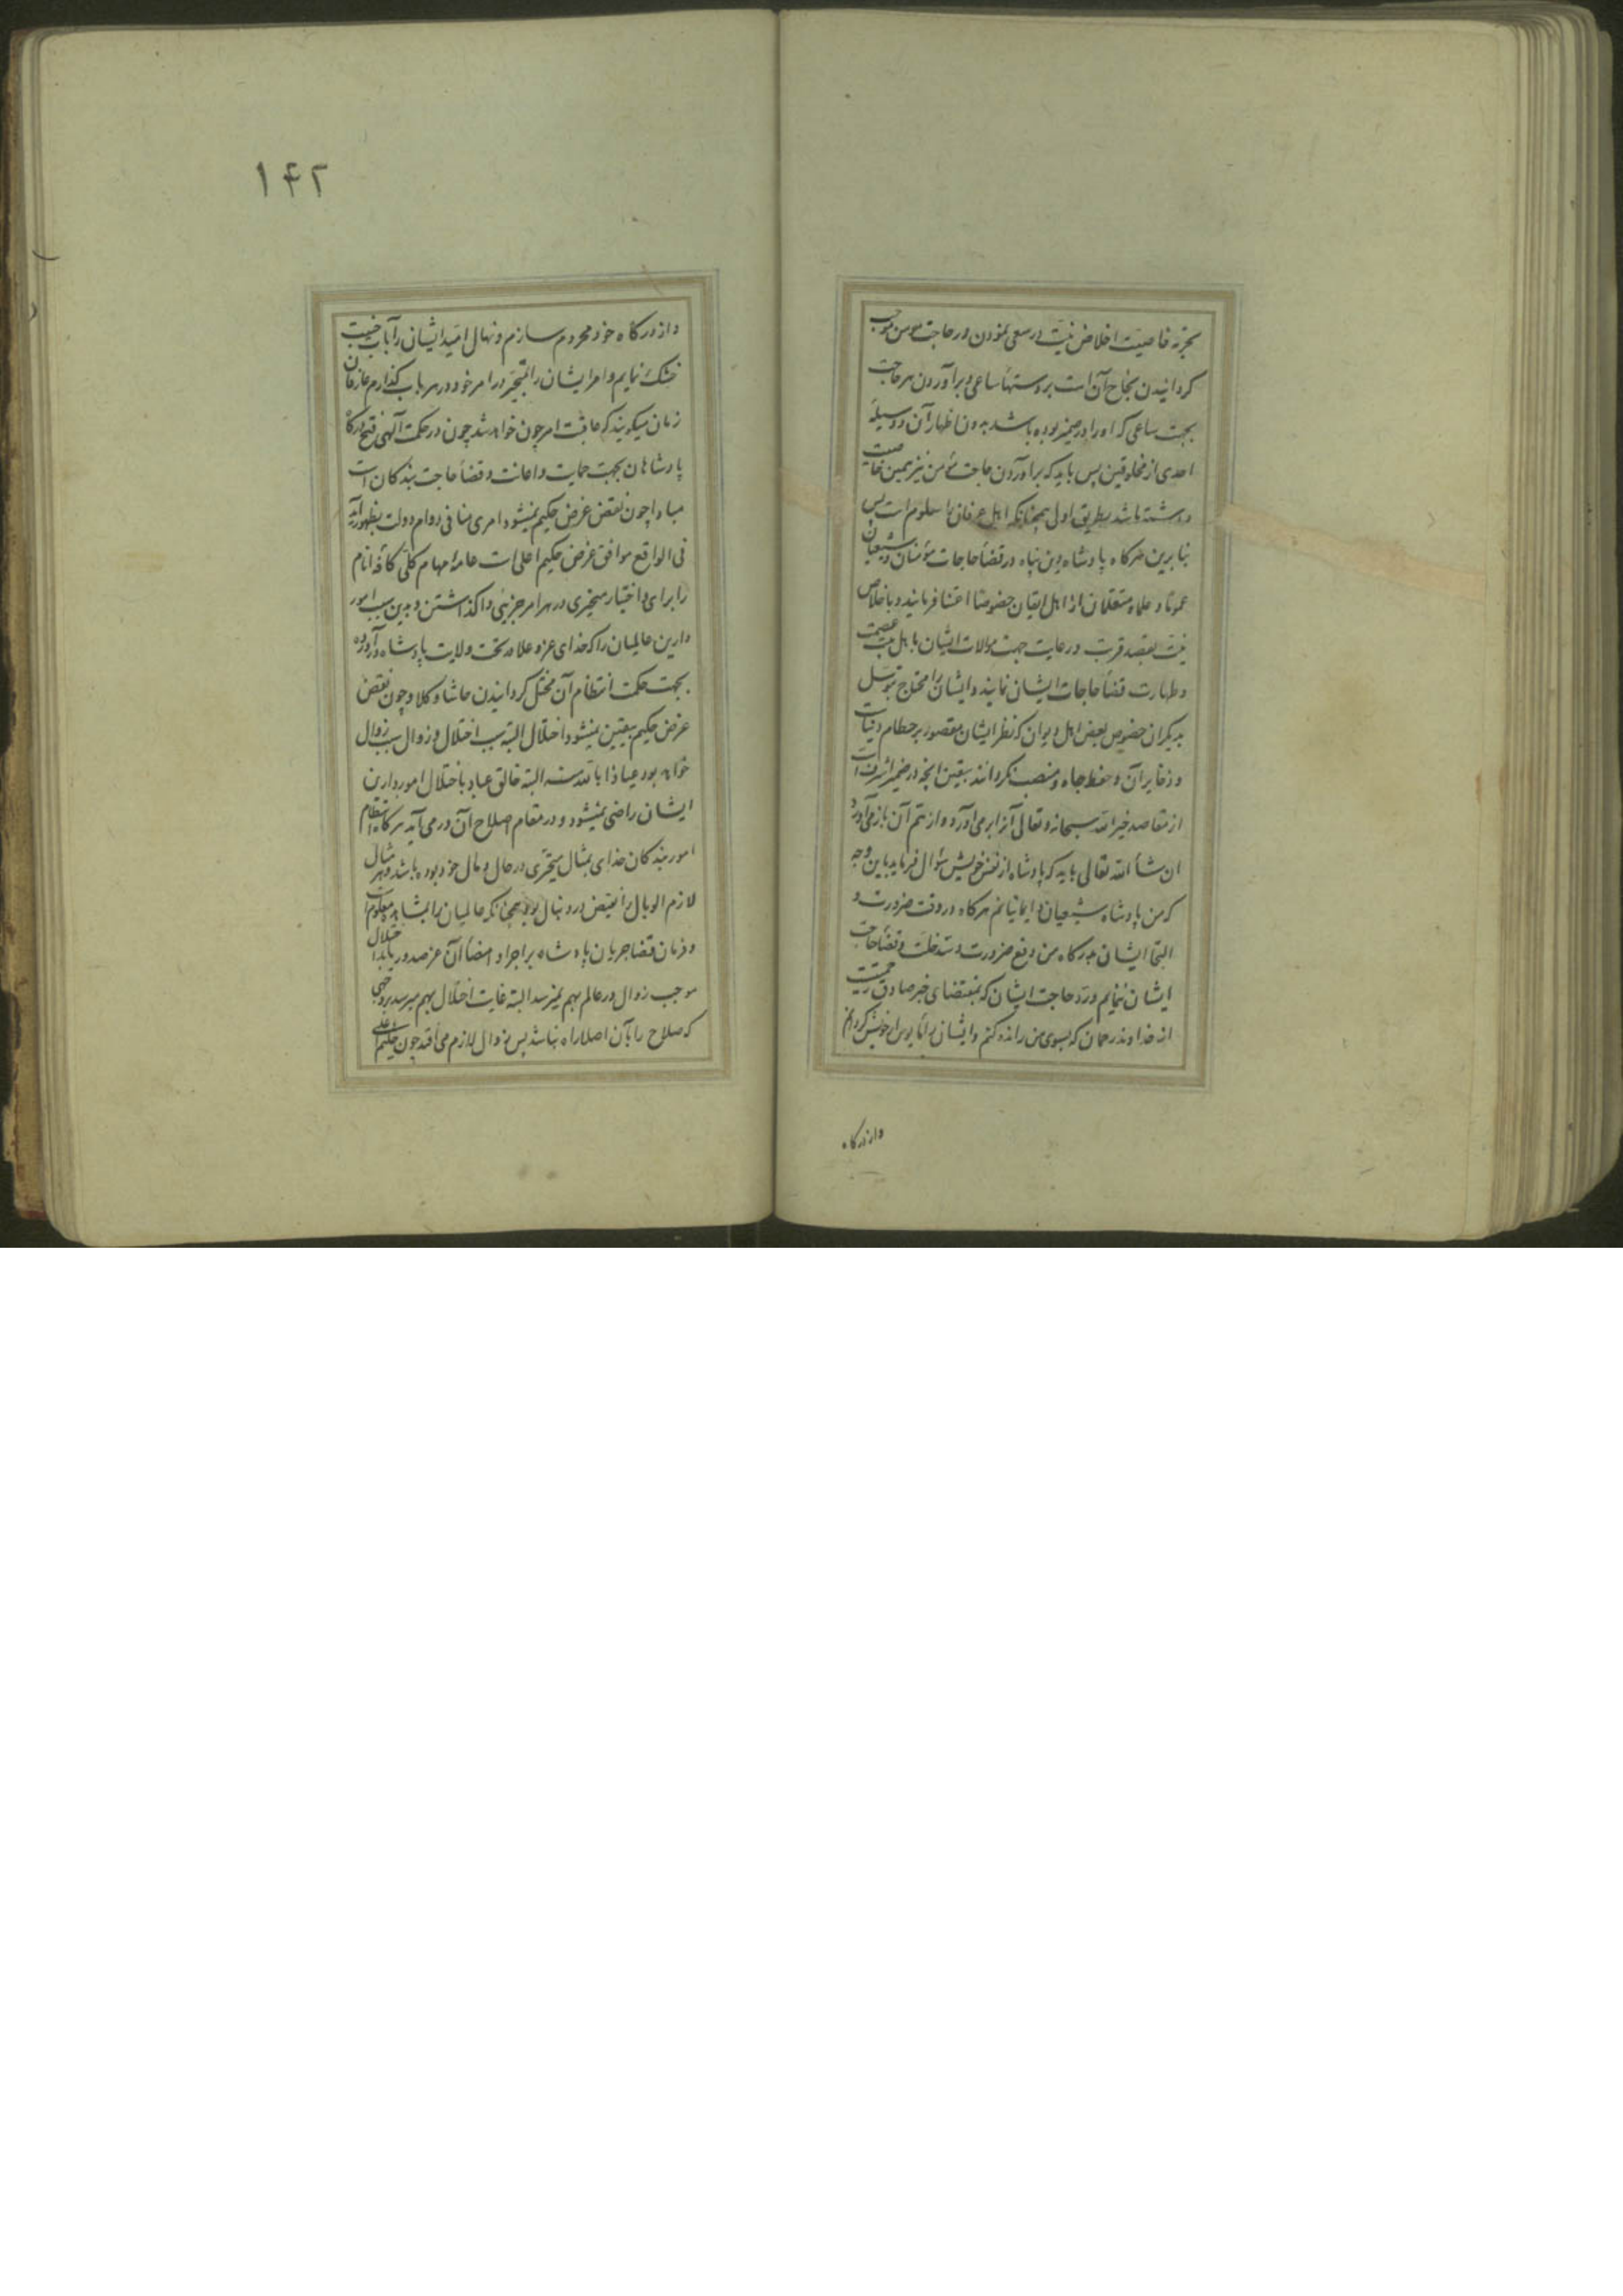 تجربه خاصیت اخلاص نیت در سعی نمودن در حاجت مومن موجب
کردانیدن نجاح آن است بر دستهأ ساعی و برآوردن هر حاجت
بجهت ساعی که او را در ضمیر بوده باشد بدون اظهار آن و وسیلهٔ
احدی از مخلوقین پس باید که برآوردن حاجت مؤمن نیز همین خاصیت
داشته باشد بطریق اولی همچنانکه اهل عرفان را معلوم است پس
بنابرین هرکاه پادشاه دین پناه در قضأ حاجات مؤمنان و شیعیان
عموما و علما و متعلمان از اهل ایقان خصوصا اعتنا فرمایند و باخلاص
نیت بقصد قربت و رعایت جهت موالات ایشان با اهل بیت عصمت
و طهارت قضأ حاجات ایشان نمایند و ایشان را محتاج بتوسل
بدیکران خصوص بعض اهل دیوان که نظر ایشان مقصور بر حطام دنیات
و ذخایر آن و حفظ جاه و منصب نکردانند بیقین آنچه در ضمیر اشرف است
از مقاصد خیر الله سبحانه و تعالی آنرا برمی‌آورد و از تتم آن باز می‌آورد
ان شأ الله تعالی باید که پادشاه از نفس خویش سؤال فرماید باین وجه
که من پادشاه شیعیان و ایمانیانم هرکاه در وقت ضرورت و
التجا ایشان بدرکاه من دفع ضرورت و سد خلت و قضأ حاجت
ایشان ننمایم و رد حاجت ایشان که بمقتضای خبر صادق رحمتیست
از خداوند رحمان که بسوی من رانده کنم و ایشان را مایوس از خویش کردانم
وازدرکاه
۱۴۲
و از درکاه خود محروم سازم و نهال امید ایشان را بآب خیبت
خشک نمایم و امر ایشان را بتحیر در امر خود در هر باب کذارم عارفان
زمان میکویند که عاقبت امر چون خواهد شد چون در حکمت آلهی فتح درکاه
پادشاهان بجهت حمایت و اعانت و قضأ حاجت بندکان است
مبادا چون نقض غرض حکیم نمیشود امری منافی دوام دولت بظهور آید
فی الواقع موافق غرض حکیم اعلی است عامهٔ مهام کلی کافهٔ انام
را برای و اختیار متحیری در هر امر جزیئی واکذاشتن و بدین سبب امور
دارین عالمیان را که خدای عز و علا در تحت ولایت پادشاه درآورده
بجهت حکمت انتظام آن مختل کردانیدن حاشا و کلا و چون نقض
غرض حکیم بیقین نمیشود اختلال البته سبب اختلال و زوال سبب زوال
خواهد بود عیاذا بالله منه البته خالق عباد باختلال امور دارین
ایشان راضی نمیشود و در مقام اصلاح آن درمی‌آید هرکاه انتظام
امور بندکان خدای بمثال متحیری در حال و مال خود بوده باشد و هر مثال
لازم الوبال را نقیض در دنبال بود همچنانکه عالمیان را بمشاهده معلوم است
و فرمان قضا جریان پادشاه بر اجرا و امضأ آن عز صدور یابد اختلال
موجب زوال در عالم بهم نمیرسد البته غایت اختلال بهم میرسد بر وجهی
که صلاح را بآن اصلا راه نباشد پس زوال لازم می‌افتد چون حکیم اعلی